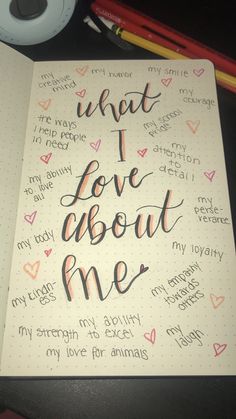 my creative mind
my humor
my smile
my courage
what
I
Love
about
me
the ways
I help people
in need
my school
pride
my
attention to
detail
my ability
to love
all
my
perse-
verance
my body
my loyalty
my kind-
ness
my empathy
towards
others
my ability
my strength to excel
my
laugh
my love for animals